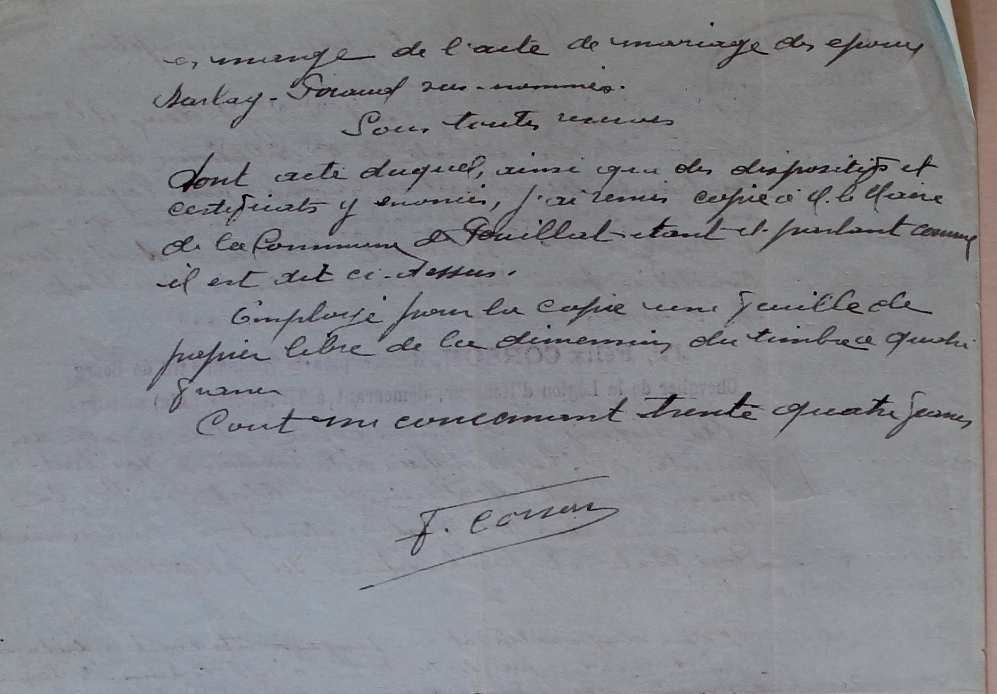 en marge de l'acte de mariage des époux
Barlay - Giraud sus-nommés.
Sous toutes réserves
dont acte duquel, ainsi que des dispositifs et
certificats y énoncés, j'ai remis copie à M. le Maire
de la Commune de Pouillat étant et parlant comme
il est dit ci-dessus.
Employé pour la copie une feuille de
papier libre de la dimension du timbre à quatre
francs
Cout me concernant trente quatre francs
F. Corron